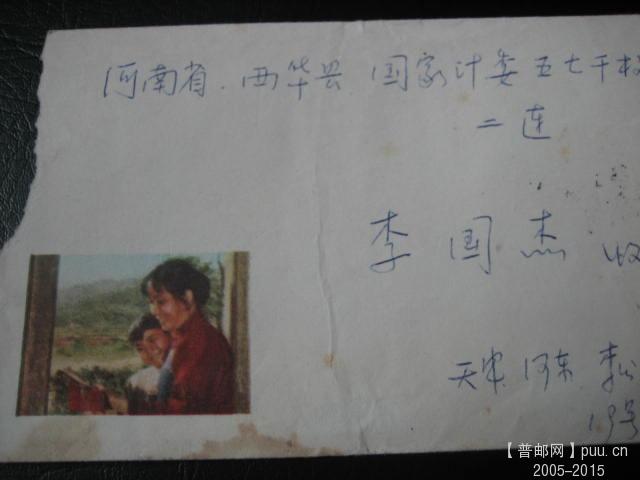 河南省.西华县 国家计委五七干校
二连
李国杰 收
天津 河东 李公
19号
【普邮网】puu.cn
2005-2015